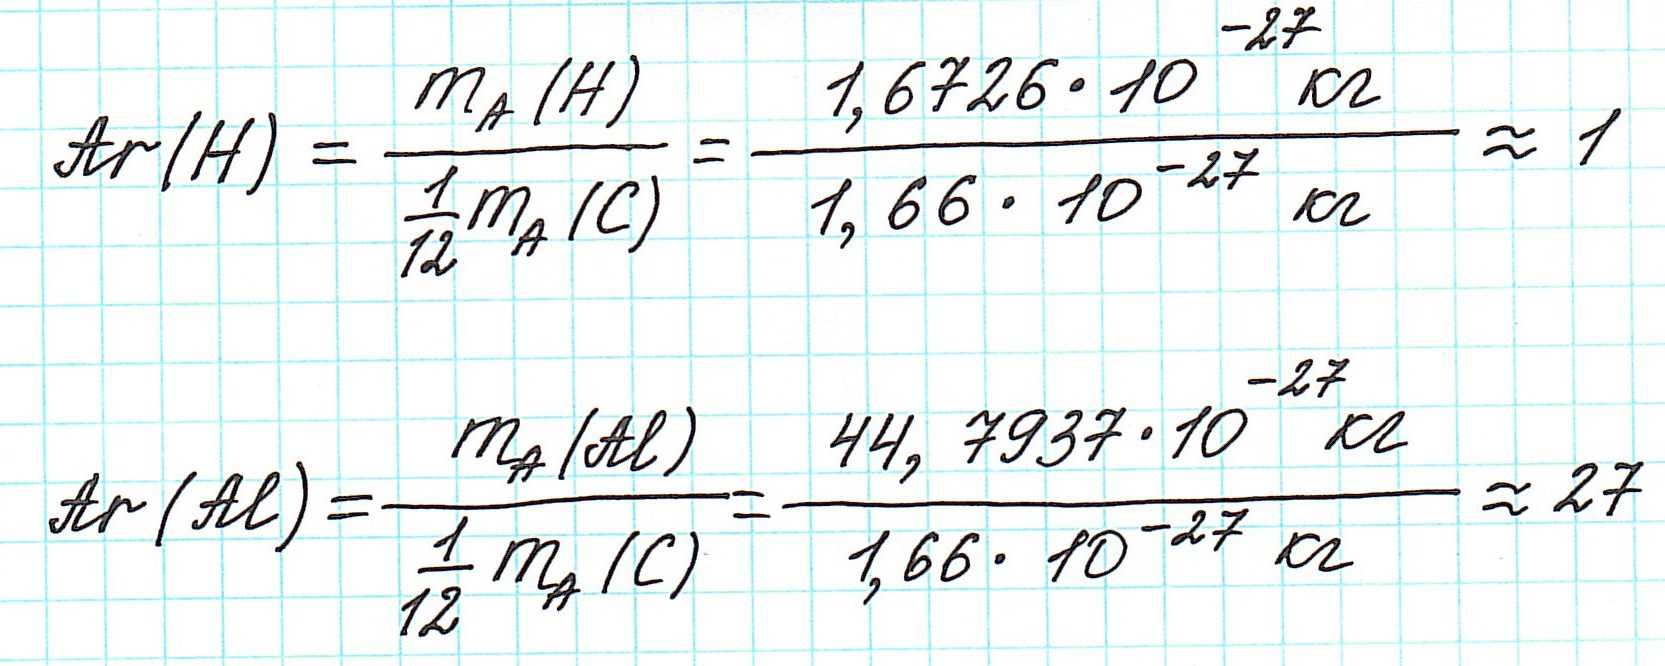 Ar(H) = mA(H) / 1/12 mA(C) = 1,6726·10^-27 кг / 1,66·10^-27 кг ≈ 1
Ar(Al) = mA(Al) / 1/12 mA(C) = 44,7937·10^-27 кг / 1,66·10^-27 кг ≈ 27